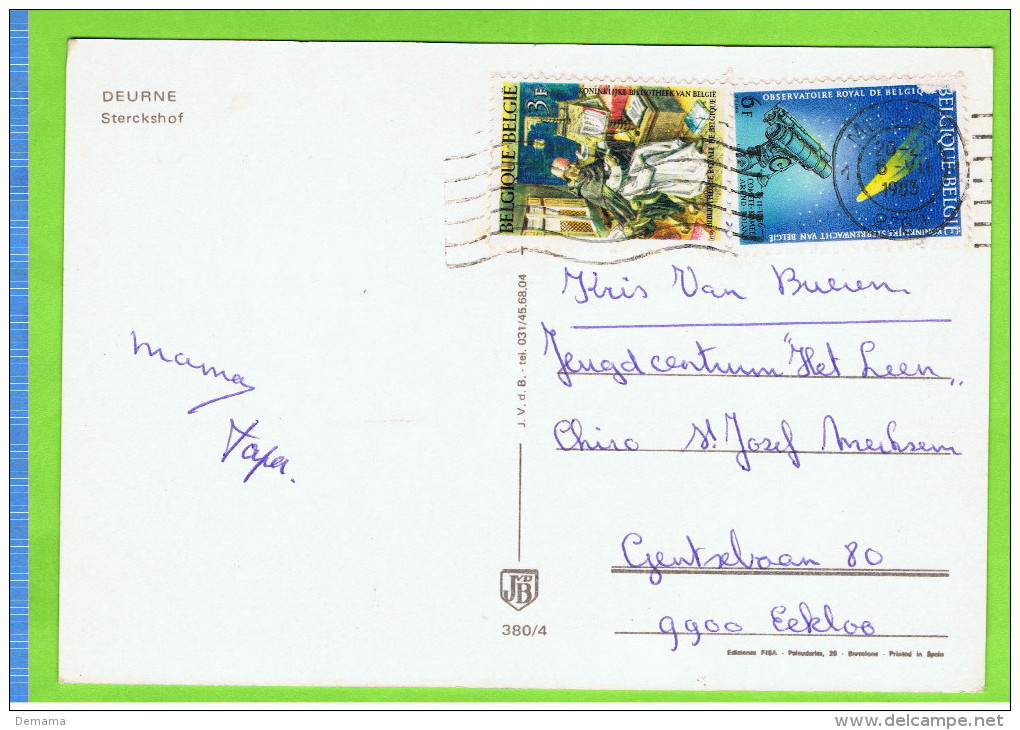 DEURNE
Sterckshof
BELGIQUE·BELGIË
3F
KONINKLIJKE BIBLIOTHEEK VAN BELGIË
BIBLIOTHEQUE ROYALE DE BELGIQUE
6F
OBSERVATOIRE ROYAL DE BELGIQUE
KONINKLIJKE STERRENWACHT VAN BELGIË
AREND-ROLAND
BELGIQUE·BELGIË
1983
mama
Papa.
J. V. d. B. - tel. 031/45.68.04
Kris Van Bueren
Jeugdcentrum "Het Leen"
Chiro St Jozef Merksem
Gentsebaan 80
9900 Eekloo
JVDB
380/4
Ediciones FISA - Palaudarias, 26 - Barcelona - Printed in Spain
Demama
www.delcampe.net